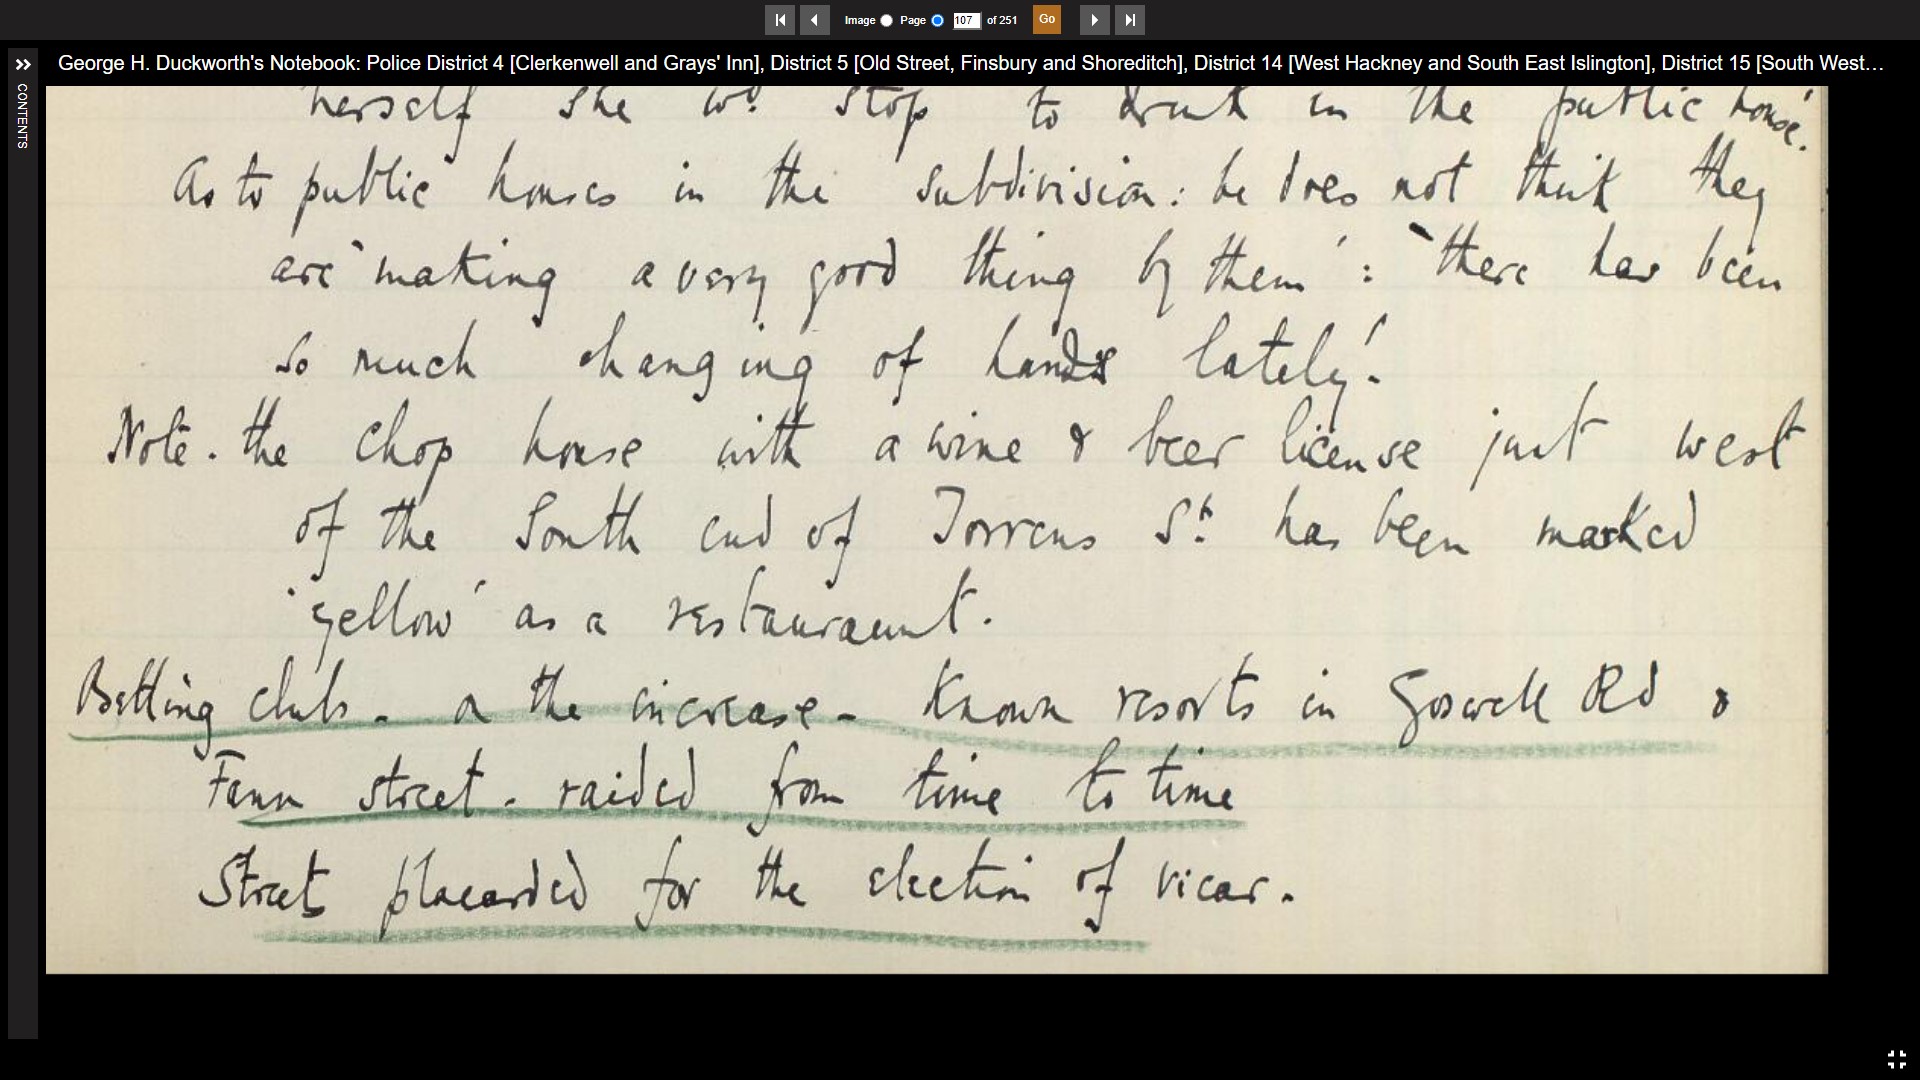 Image Page 107 of 251 Go
George H. Duckworth's Notebook: Police District 4 [Clerkenwell and Grays' Inn], District 5 [Old Street, Finsbury and Shoreditch], District 14 [West Hackney and South East Islington], District 15 [South West...
CONTENTS
herself she wd. stop to drink in the public house'.
As to public houses in the subdivision: he does not think they
are 'making a very good thing by them': 'there has been
so much changing of hands lately'.
Note. the chop house with a wine & beer license just west
of the South end of Torrens St. has been marked
'yellow' as a restauraunt.
Betting clubs - on the increase - Known resorts in Goswell Rd &
Fann street. raided from time to time
Streets placarded for the election of vicar.